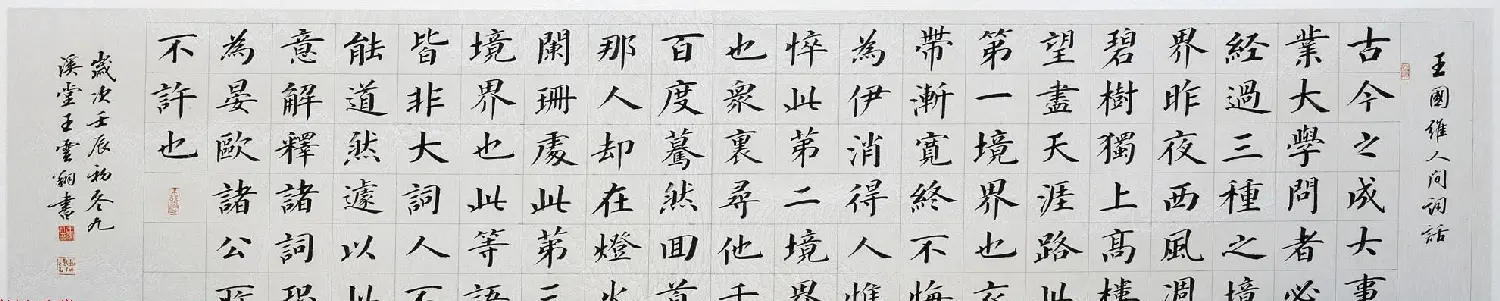 王國维人间词話
古今之成大事
業大學問者必
经過三種之境
界昨夜西風凋
碧樹獨上高樓
望盡天涯路此
第一境界也衣
帶漸寬終不悔
為伊消得人憔
悴此第二境界
也衆裏尋他千
百度驀然回首
那人却在燈火
闌珊處此第三
境界也此等語
皆非大詞人不
能道然遽以此
意解釋諸詞恐
為晏歐諸公所
不許也
歲次壬辰初冬九
溪堂王雲翔書